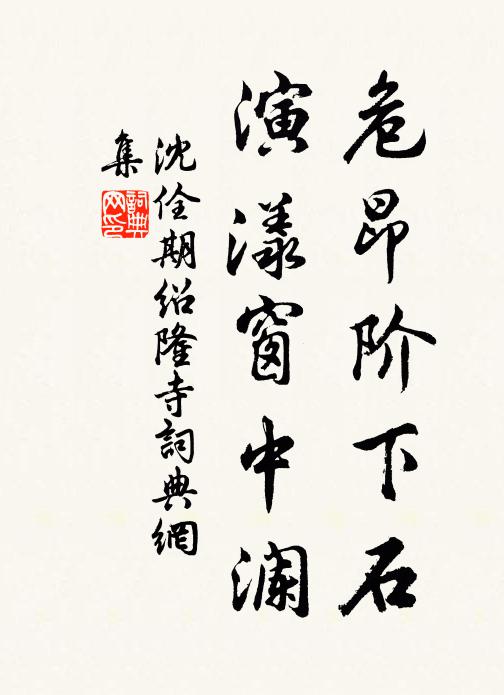 危昂阶下石
演漾窗中澜
沈佺期绍隆寺詞典網
集
詞典
网印